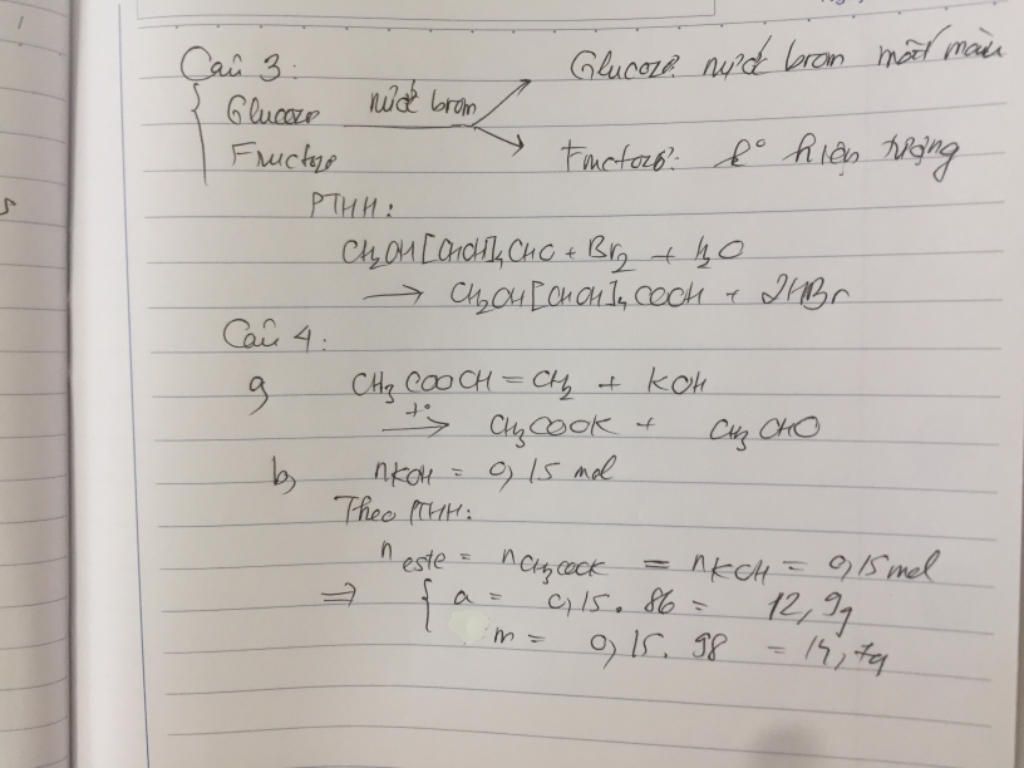 Câu 3: Glucozơ: nước brom mất màu
Glucozơ nước brom
Fructozơ Fructozơ: k° hiện tượng
PTHH:
CH₂OH[CHOH]₄CHO + Br₂ + H₂O
→ CH₂OH[CHOH]₄COOH + 2HBr
Câu 4:
a, CH₃COOCH=CH₂ + KOH
t°→ CH₃COOK + CH₃CHO
b, nKOH = 0,15 mol
Theo PTHH:
n este = nCH₃COOK = nKOH = 0,15 mol
⇒ { a = 0,15. 86 = 12,9g
m = 0,15. 98 = 14,7g